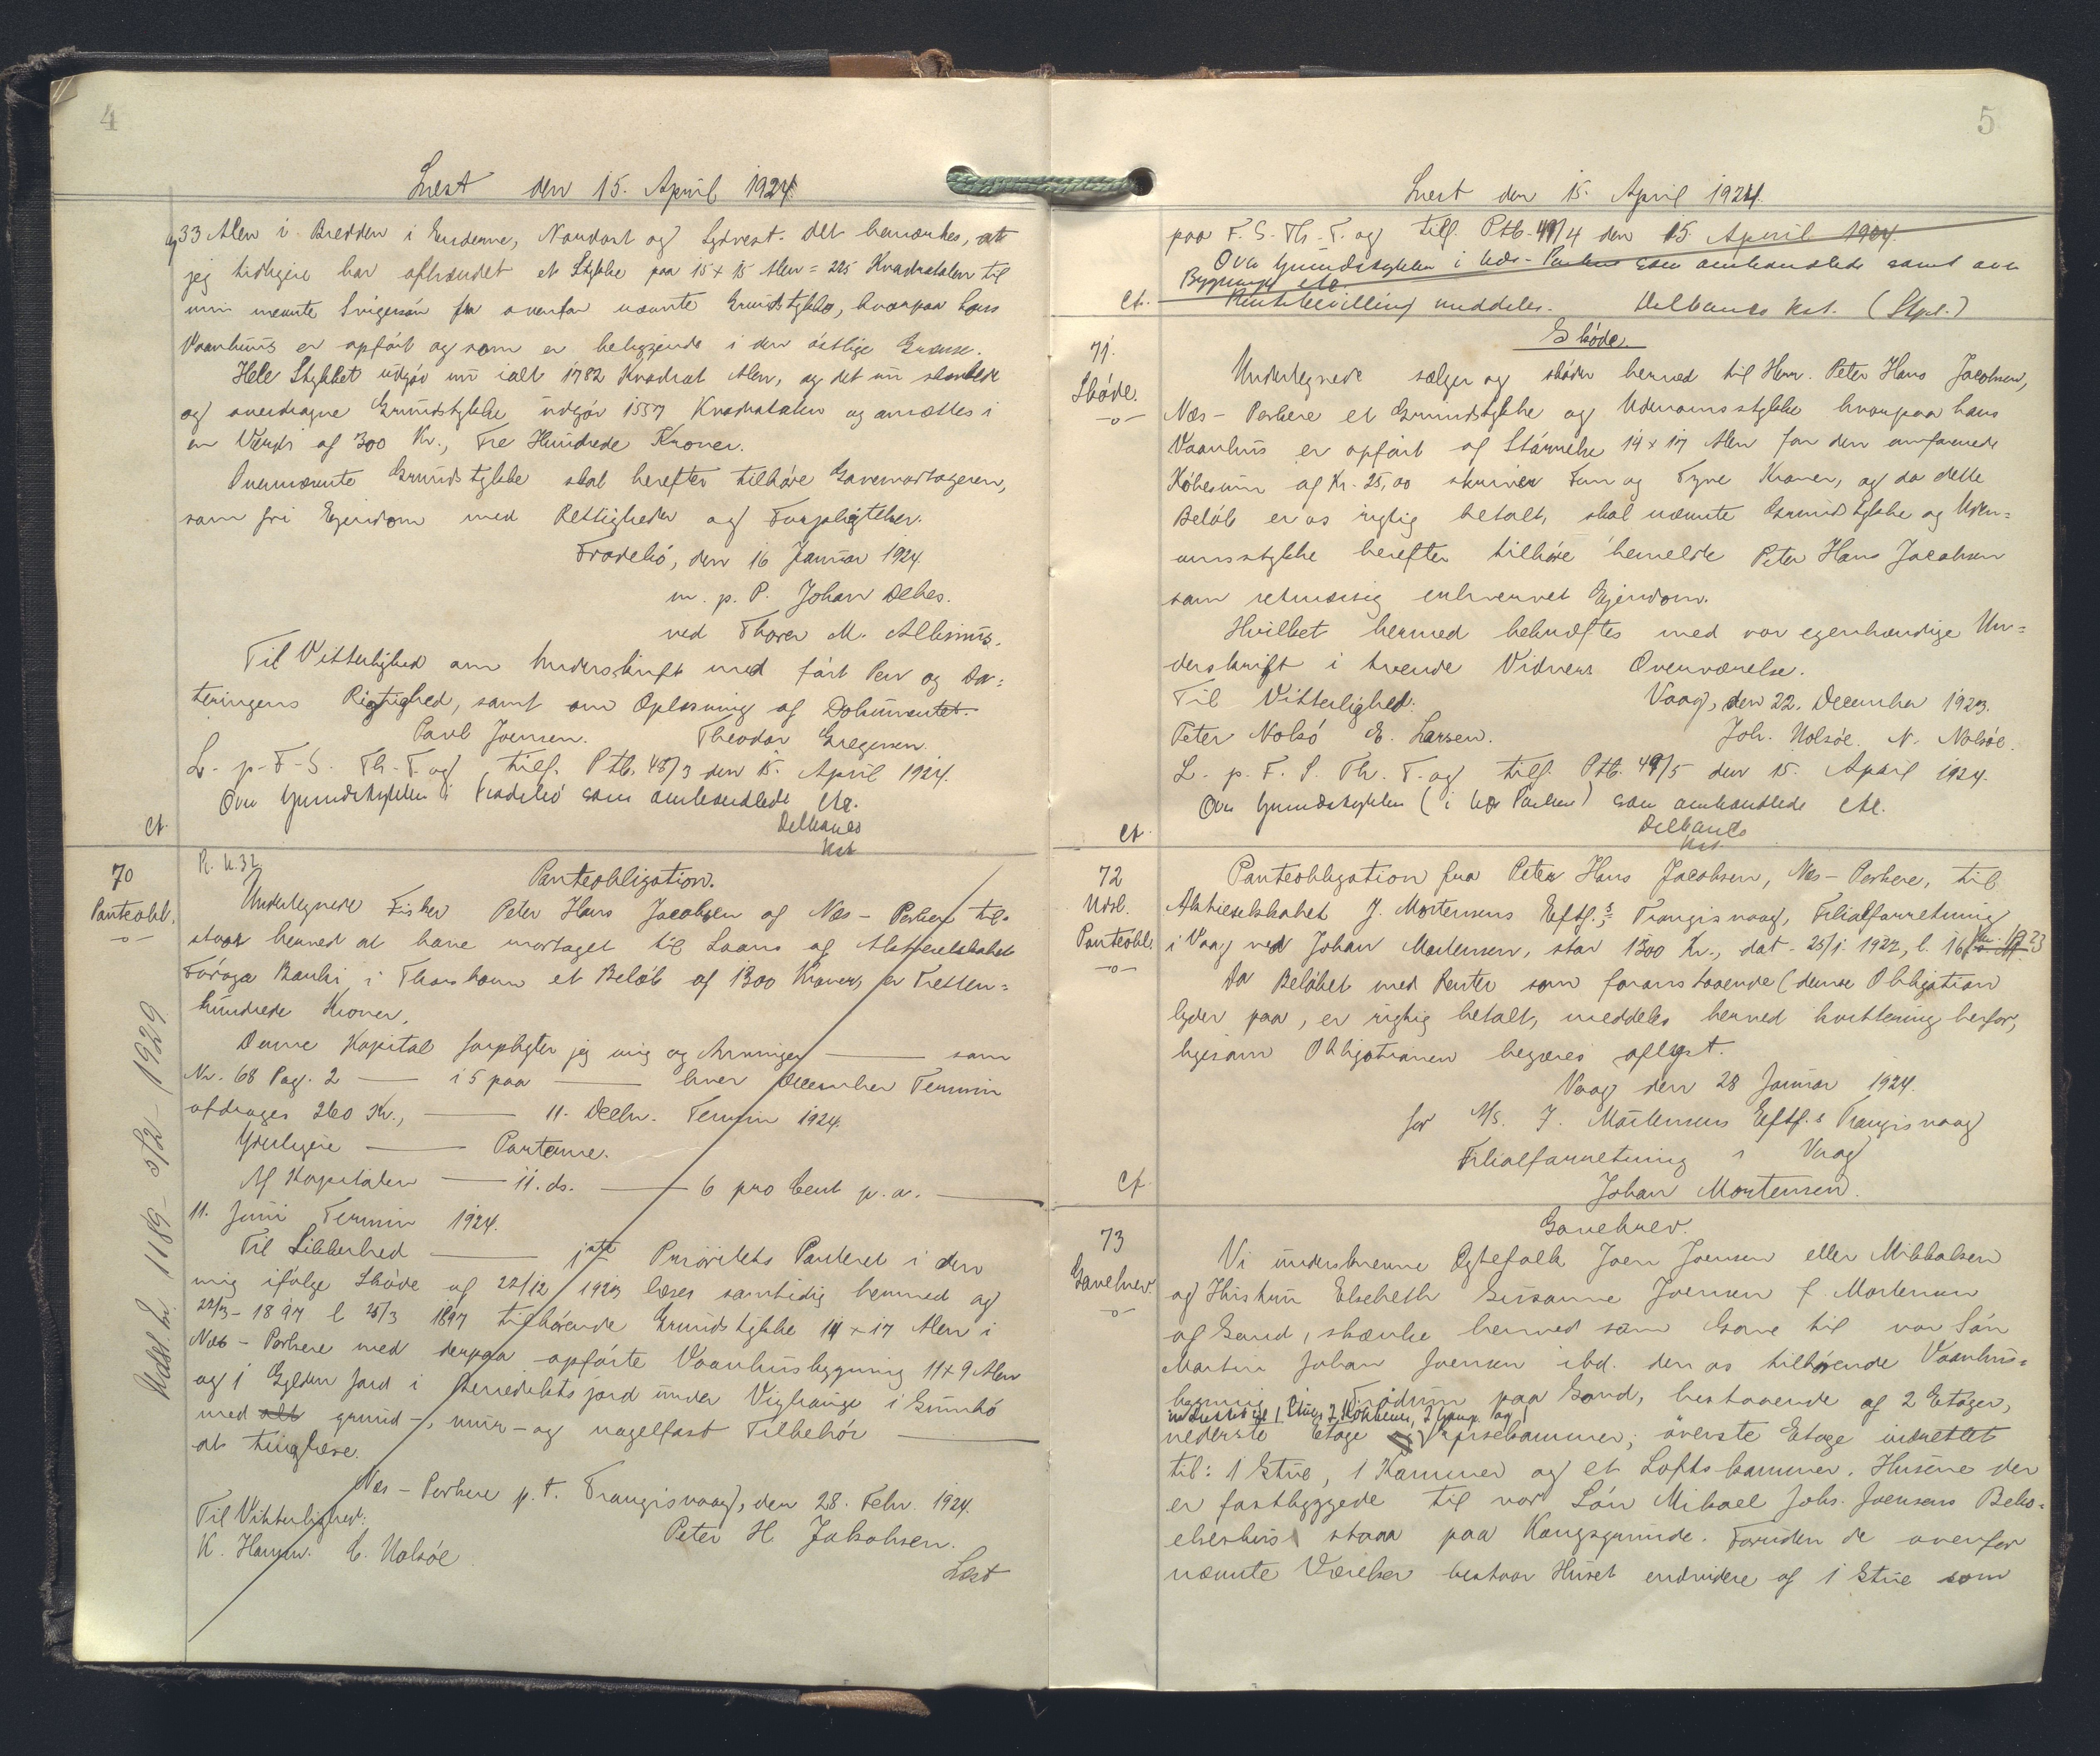 4
Læst den 15. April 1924.
og 33 Alen i Bredden i Enderne, Nordost og Sydvest. Det bemærkes, at
jeg tidligere har afhændet et Stykke paa 15 x 15 Alen = 225 Kvadratalen til
min nævnte Svigersön fra ovenfor nævnte Grundstykke, hvorpaa hans
Vaanhus er opfört og som er beliggende i den östlige Grænse.
Hele Stykket udgör nu ialt 1782 Kvadrat Alen, og det nu skænkede
og overdragne Grundstykke udgör 1557 Kvadratalen og ansættes i
en Værdi af 300 Kr., Tre Hundrede Kroner.
Ovennævnte Grundstykke skal herefter tilhöre Gavemodtageren,
som fri Ejendom med Rettigheder og Forpligtelser.
Frodebö, den 16 Januar 1924.
m. p. P. Johan Debes.
ved Thorer M. Albinus.
Til Vitterlighed om Underskrift med fört Pen og Da=
teringens Rigtighed, samt om Oplæsning af Dokumentet.
Poul Joensen. Theodor Gregersen.
L. p. F. S. Th. T. og tilf. Ptb. 48/3 den 15. April 1924.
Ovn Grundstykket i Frodebö som omhandlede etc.
Delbanco
kst
ct.
70
Panteobl.
-o-
R. k. 32
Panteobligation.
Undertegnede Fisker Peter Hans Jacobsen af Næs - Porkere til-
staar herved at have modtaget til Laans af Aktieselskabet
Föroya Banki i Thorshavn et Belöb af 1300 Kroner, er Tretten=
hundrede Kroner.
Denne Kapital forpligter jeg mig og Arvinger — som
Nr. 68 Pag. 2 — i 5 paa — hver December Termin
afdrages 260 Kr., — 11. Decbr. Termin 1924.
Yderligere — Parterne.
Af Kapitalen — 11. ds. — 6 pro Cent p. a. —
11. Juni Termin 1924.
Til Sikkerhed — 1ste Prioritets Panteret i den
mig ifölge Sköde af 22/12 1923 læses samtidig hermed og
22/3 - 1897 l 25/3 1897 tilhörende Grundstykke 14 x 17 Alen i
Næs - Porkere med derpaa opförte Vaanhusbygning 11 x 9 Alen
og 1 Gylden Jord i
med alt grund-, mur- og nagelfast Tilbehör —
at tinglæse.
Næs - Porkere p. t. Trangisvaag, den 28. Febr. 1924.
Til Vitterlighed:
Peter H. Jakobsen.
K. Hansen. C. Nolsöe.
Læst
Udsl. Lr. 1189 - 5/2 - 1929
5
Læst den 15. April 1924.
paa F. S. Th. T. og tilf. Ptb. 49/4 den 15 April 1924.
Ovn Grundstykket i Næs - Porkere som omhandlede samt ovn
Bygninger etc.
Rentebevilling meddeles. Delbanco kst. (Stpl.)
ct.
71.
Sköde.
-o-
Sköde.
Undertegnede sælger og sköder herved til Herr. Peter Hans Jacobsen,
Næs - Porkere et Grundstykke og Udenomsstykke hvorpaa hans
Vaanhus er opfört af Störrelse 14 x 17 Alen for den omforenede
Köbesum af Kr. 25,00 skriver Fem og Tyve Kroner, og da dette
Belöb er os rigtig betalt, skal nævnte Grundstykke og Uden=
omsstykke herefter tilhöre bemeldte Peter Hans Jacobsen
som retmæssig erhvervet Ejendom.
Hvilket herved bekræftes med vor egenhændige Un=
derskrift i tvende Vidners Overværelse.
Til Vitterlighed: Vaag, den 22. December 1923.
Peter Nolsö E. Larsen. Joh. Nolsöe. N. Nolsöe.
L. p. F. S. Th. T. og tilf. Ptb. 49/5 den 15. April 1924.
Ovn Grundstykket (i Næs Porkere) som omhandlede etc.
Delbanco
kst.
ct
72
Udsl.
Panteobl.
-o-
Panteobligation fra Peter Hans Jacobsen, Næs - Porkere, til
Aktieselskabet J. Mortensens Eftf.s, Trangisvaag, Filialforretning
i Vaag ved Johan Mortensen, stor 1300 Kr., dat. 25/1. 1922, l. 16
Da Belöbet med Renter som foranstaaende (denne Obligation
lyder paa, er rigtig betalt, meddeles herved kvittering herfor,
ligesom Obligationen begæres aflyst.
Vaag den 28 Januar 1924.
for A/S. J. Mortensens Eftf.s Trangisvaag
Filialforretning i Vaag
Johan Mortensen.
ct.
73
Gavebrev.
-o-
Gavebrev.
Vi underskrevne Ægtefolk Joen Joensen eller Mikkelsen
og Hustru Elsebeth Susanne Joensen f. Mortensen
af Sand, skænke herved som Gave til vor Sön
Martin Johan Joensen ibd. den os tilhörende Vaanhus=
bygning Trödum paa Sand, bestaaende af 2 Etager,
indrettet til 1 Stue, 1 Kökken, 1 Gang og 1
nederste Etage Spisekammer; överste Etage indrettet
til: 1 Stue, 1 Kammer og et Loftskammer. Husene der
er fastbyggede til vor Sön Mikael Johs. Joensens Bebo=
elseshus staaa paa Kongsgrunde. Foruden de ovenfor
nævnte Værelser bestaar Huset endvidere af 1 Stue som